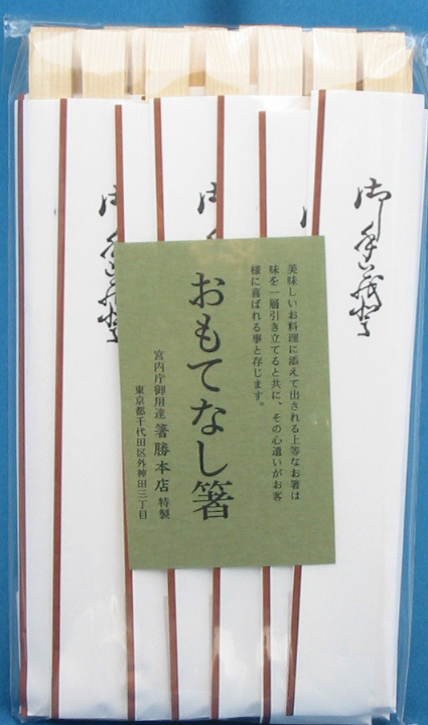 美味しいお料理に添えて出される上等なお箸は
味を一層引き立てると共に、その心遣いがお客
様に喜ばれる事と存じます。
おもてなし箸
宮内庁御用達 箸勝本店 特製
東京都千代田区外神田三丁目
御手茂登
御
御